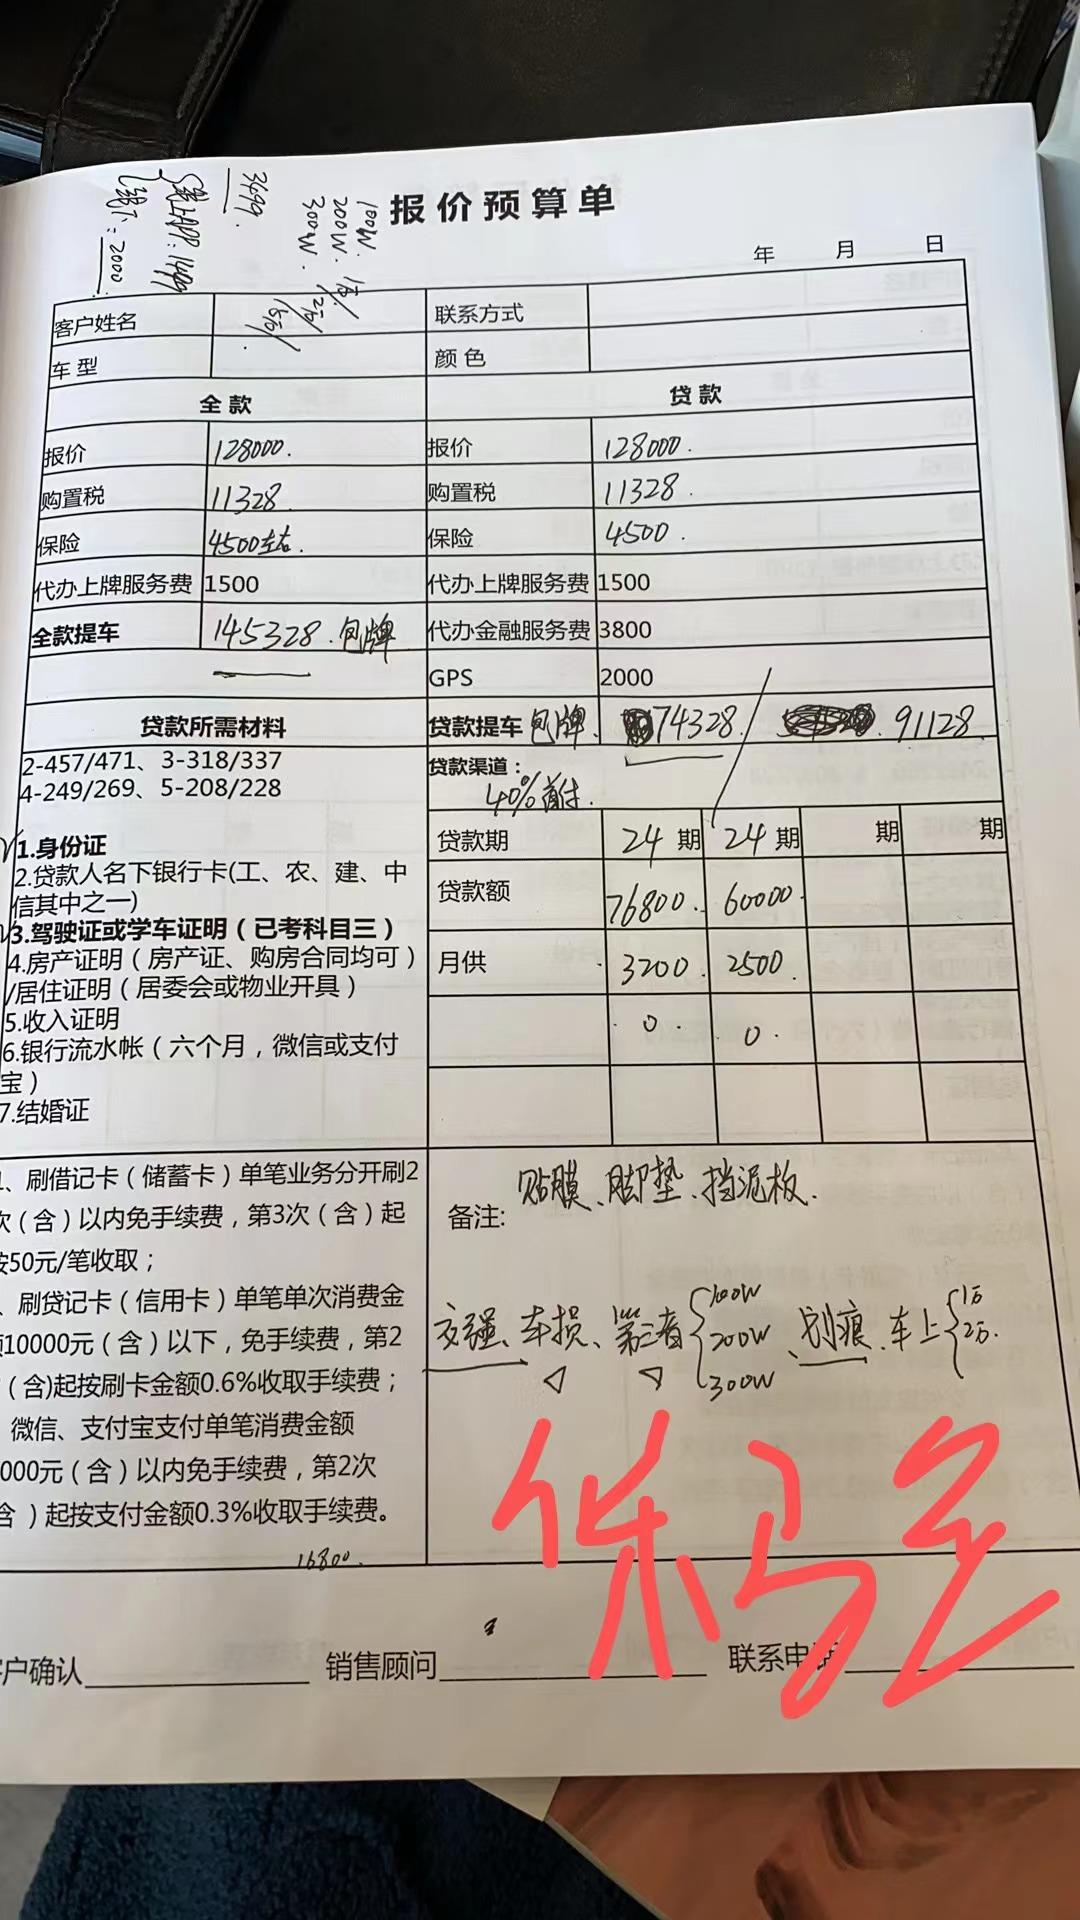 3499.
线上APP:1499
线下:2000
100W. 1百/
200W. 1百2/
300W. 1百5/
报价预算单
年 月 日
客户姓名 联系方式
车型 颜色
全款 贷款
报价 128000. 报价 128000.
购置税 11328. 购置税 11328.
保险 4500左右. 保险 4500.
代办上牌服务费 1500 代办上牌服务费 1500
全款提车 145328.包牌 代办金融服务费 3800
GPS 2000
贷款所需材料 贷款提车 包牌、 74328/ 91128.
2-457/471、3-318/337
4-249/269、5-208/228
贷款渠道:
40%首付.
贷款期 24期 24期 期 期
贷款额 76800. 60000.
月供 3200. 2500.
0. 0.
1.身份证
2.贷款人名下银行卡(工、农、建、中
信其中之一)
3.驾驶证或学车证明(已考科目三)
4.房产证明(房产证、购房合同均可)
/居住证明(居委会或物业开具)
5.收入证明
6.银行流水帐(六个月,微信或支付
宝)
7.结婚证
1、刷借记卡(储蓄卡)单笔业务分开刷2
次(含)以内免手续费,第3次(含)起
按50元/笔收取;
、刷贷记卡(信用卡)单笔单次消费金
额10000元(含)以下,免手续费,第2
(含)起按刷卡金额0.6%收取手续费;
微信、支付宝支付单笔消费金额
000元(含)以内免手续费,第2次
含)起按支付金额0.3%收取手续费。
16800.
备注: 贴膜、脚垫、挡泥板.
交强、车损、第三者{100W 200W 300W、划痕、车上{1百 2百.
保骏
客户确认 销售顾问 联系电话